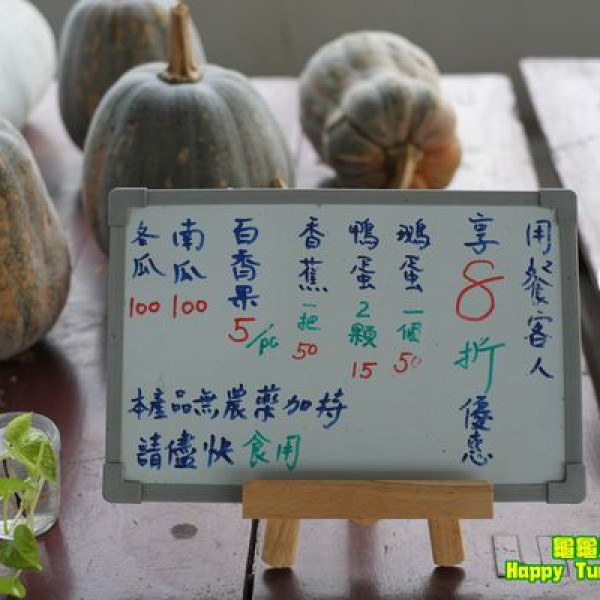 用餐客人
享8折優惠
鵝蛋一個50
鴨蛋2顆15
香蕉一把50
百香果5/pc
南瓜100
冬瓜100
本產品無農藥加持
請儘快食用
龜龜
Happy Tu